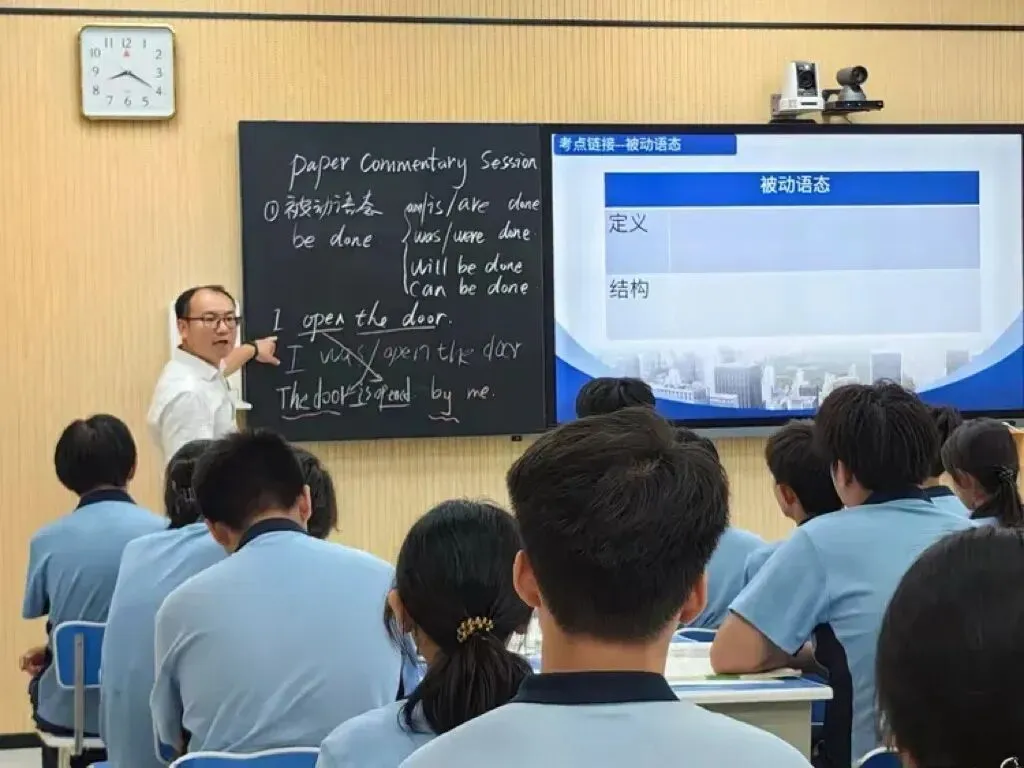 11 12 1
10 2
9 3
8 4
7 6 5
Paper Commentary Session
① 被动语态 am/is/are done
be done was/were done.
will be done
can be done
I open the door.
I was/open the door
The door is opend by me.
考点链接--被动语态
被动语态
定义
结构